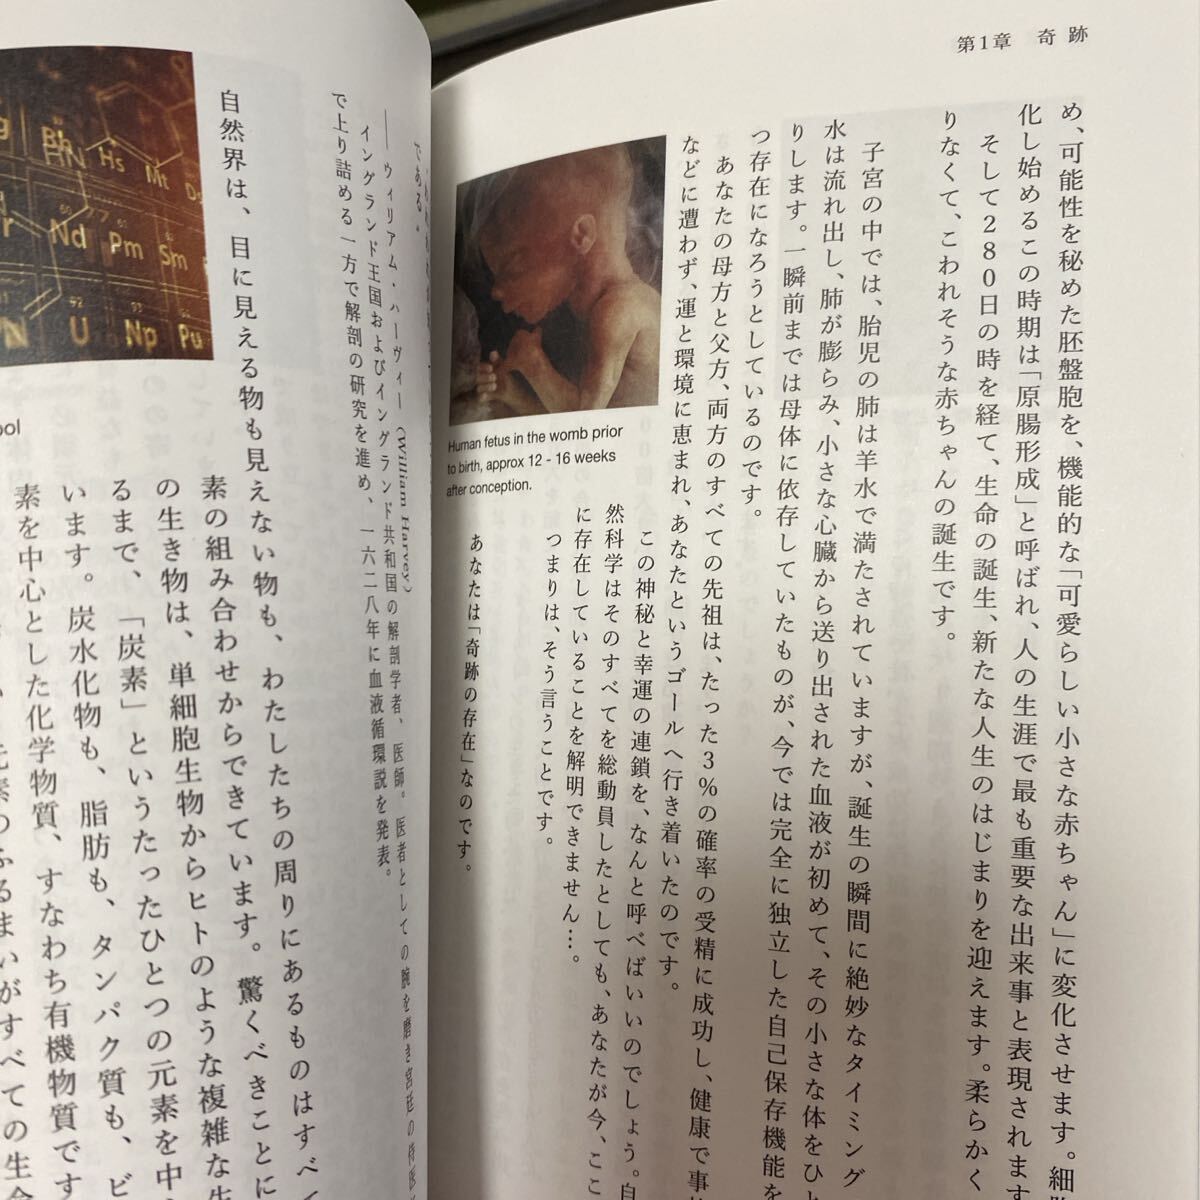 第1章 奇跡
め、可能性を秘めた胚盤胞を、機能的な「可愛らしい小さな赤ちゃん」に変化させます。細胞
化し始めるこの時期は「原腸形成」と呼ばれ、人の生涯で最も重要な出来事と表現されます
そして280日の時を経て、生命の誕生、新たな人生のはじまりを迎えます。柔らかく
りなくて、こわれそうな赤ちゃんの誕生です。
子宮の中では、胎児の肺は羊水で満たされていますが、誕生の瞬間に絶妙なタイミング
水は流れ出し、肺が膨らみ、小さな心臓から送り出された血液が初めて、その小さな体をひと
りします。一瞬前までは母体に依存していたものが、今では完全に独立した自己保存機能を
つ存在になろうとしているのです。
あなたの母方と父方、両方のすべての先祖は、たった3%の確率の受精に成功し、健康で事
などに遭わず、運と環境に恵まれ、あなたというゴールへ行き着いたのです。
この神秘と幸運の連鎖を、なんと呼べばいいのでしょう。自
然科学はそのすべてを総動員したとしても、あなたが今、ここ
に存在していることを解明できません…。
つまりは、そう言うことです。
あなたは「奇跡の存在」なのです。
Human fetus in the womb prior
to birth, approx 12 - 16 weeks
after conception.
である。
――ウィリアム・ハーヴィー(William Harvey)
イングランド王国およびイングランド共和国の解剖学者、医師。医者としての腕を磨き宮廷の侍医
で上り詰める一方で解剖の研究を進め、一六二八年に血液循環説を発表。
自然界は、目に見える物も見えない物も、わたしたちの周りにあるものはすべ
素の組み合わせからできています。驚くべきことに
の生き物は、単細胞生物からヒトのような複雑な生
るまで、「炭素」というたったひとつの元素を中
います。炭水化物も、脂肪も、タンパク質も、ビ
素を中心とした化学物質、すなわち有機物質です
元素のふるまいがすべての生命
Bh
Hs
Mt
Ds
HN
Nd
Pm
Sm
U
Np
Pu
92
ool